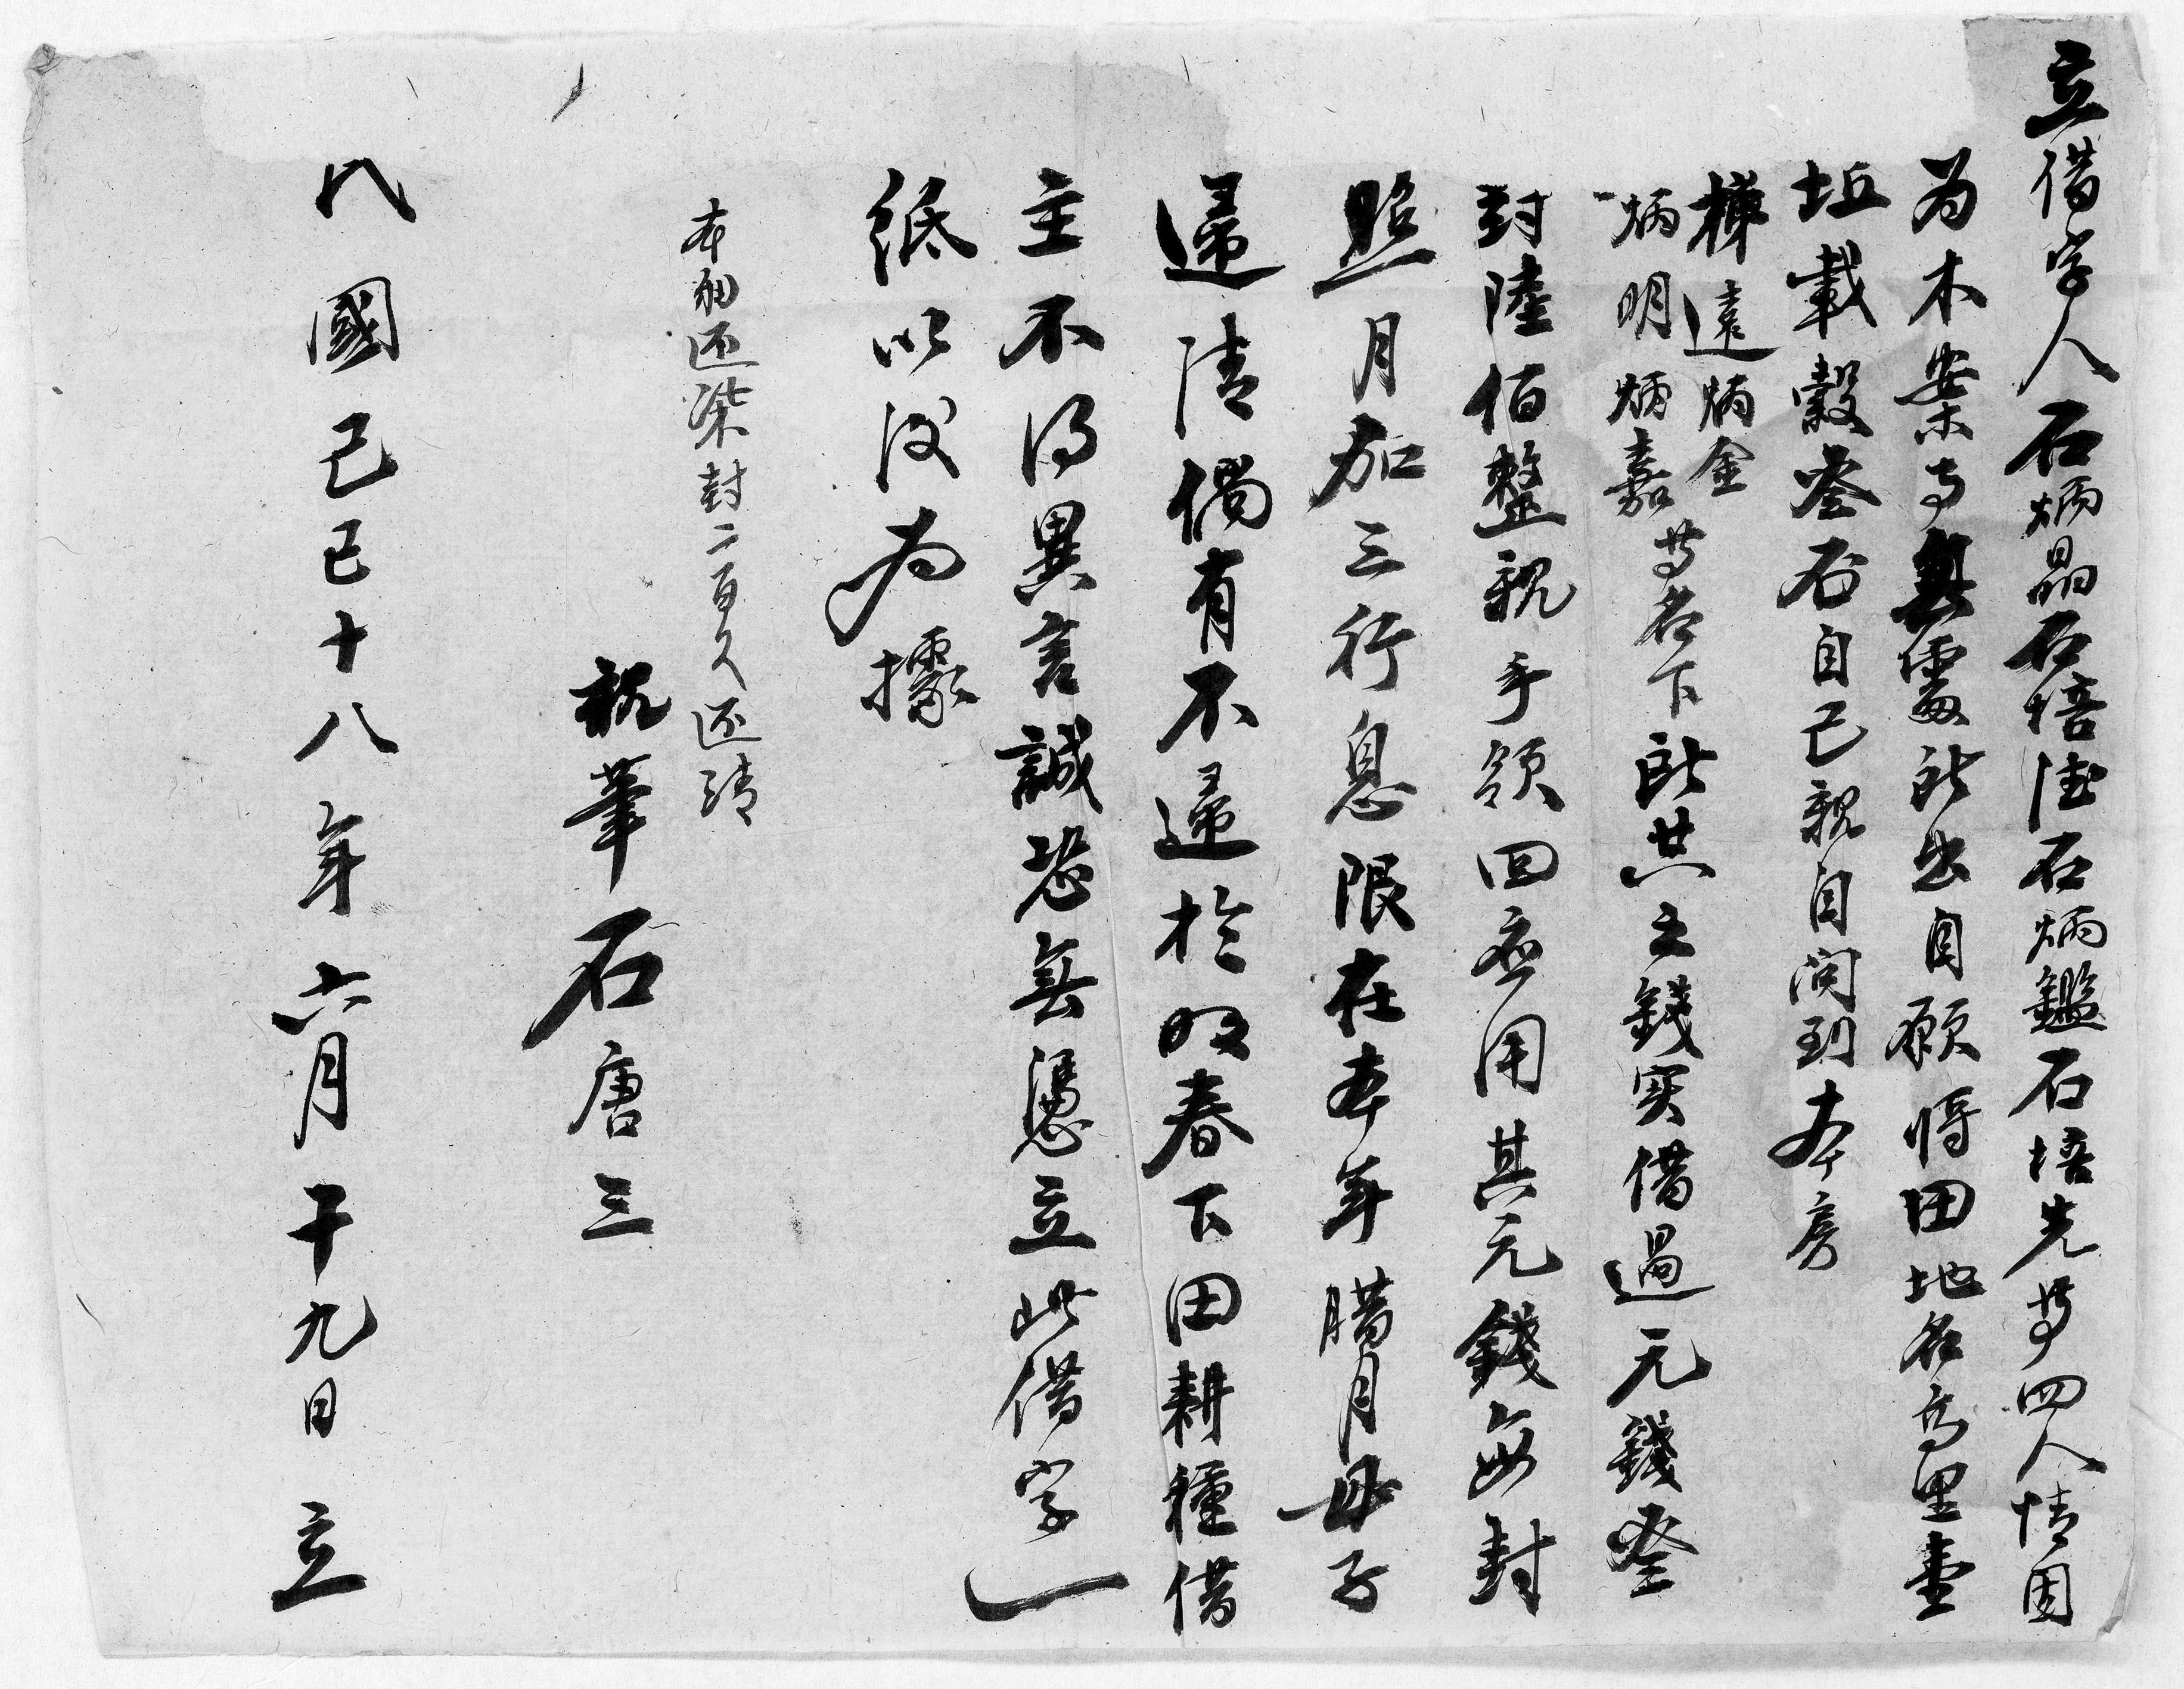 立借字人石炳晶石培德石炳鑑石培先等四人情因
为木案事無處所出自願将田地名高里壹
坵載穀叁石自己親自问到本房
梯遠炳金
炳明炳嘉等名下所共之錢实借過元錢叁
封陸佰整親手领回应用其元錢每封
照月加三行息限在本年腊月母子
還清倘有不還於明春下田耕種借
主不得異言誠恐無憑立此借字一
纸以後为據
本利还柒封二百文还清
親筆石唐三
民國己巳十八年六月十九日立